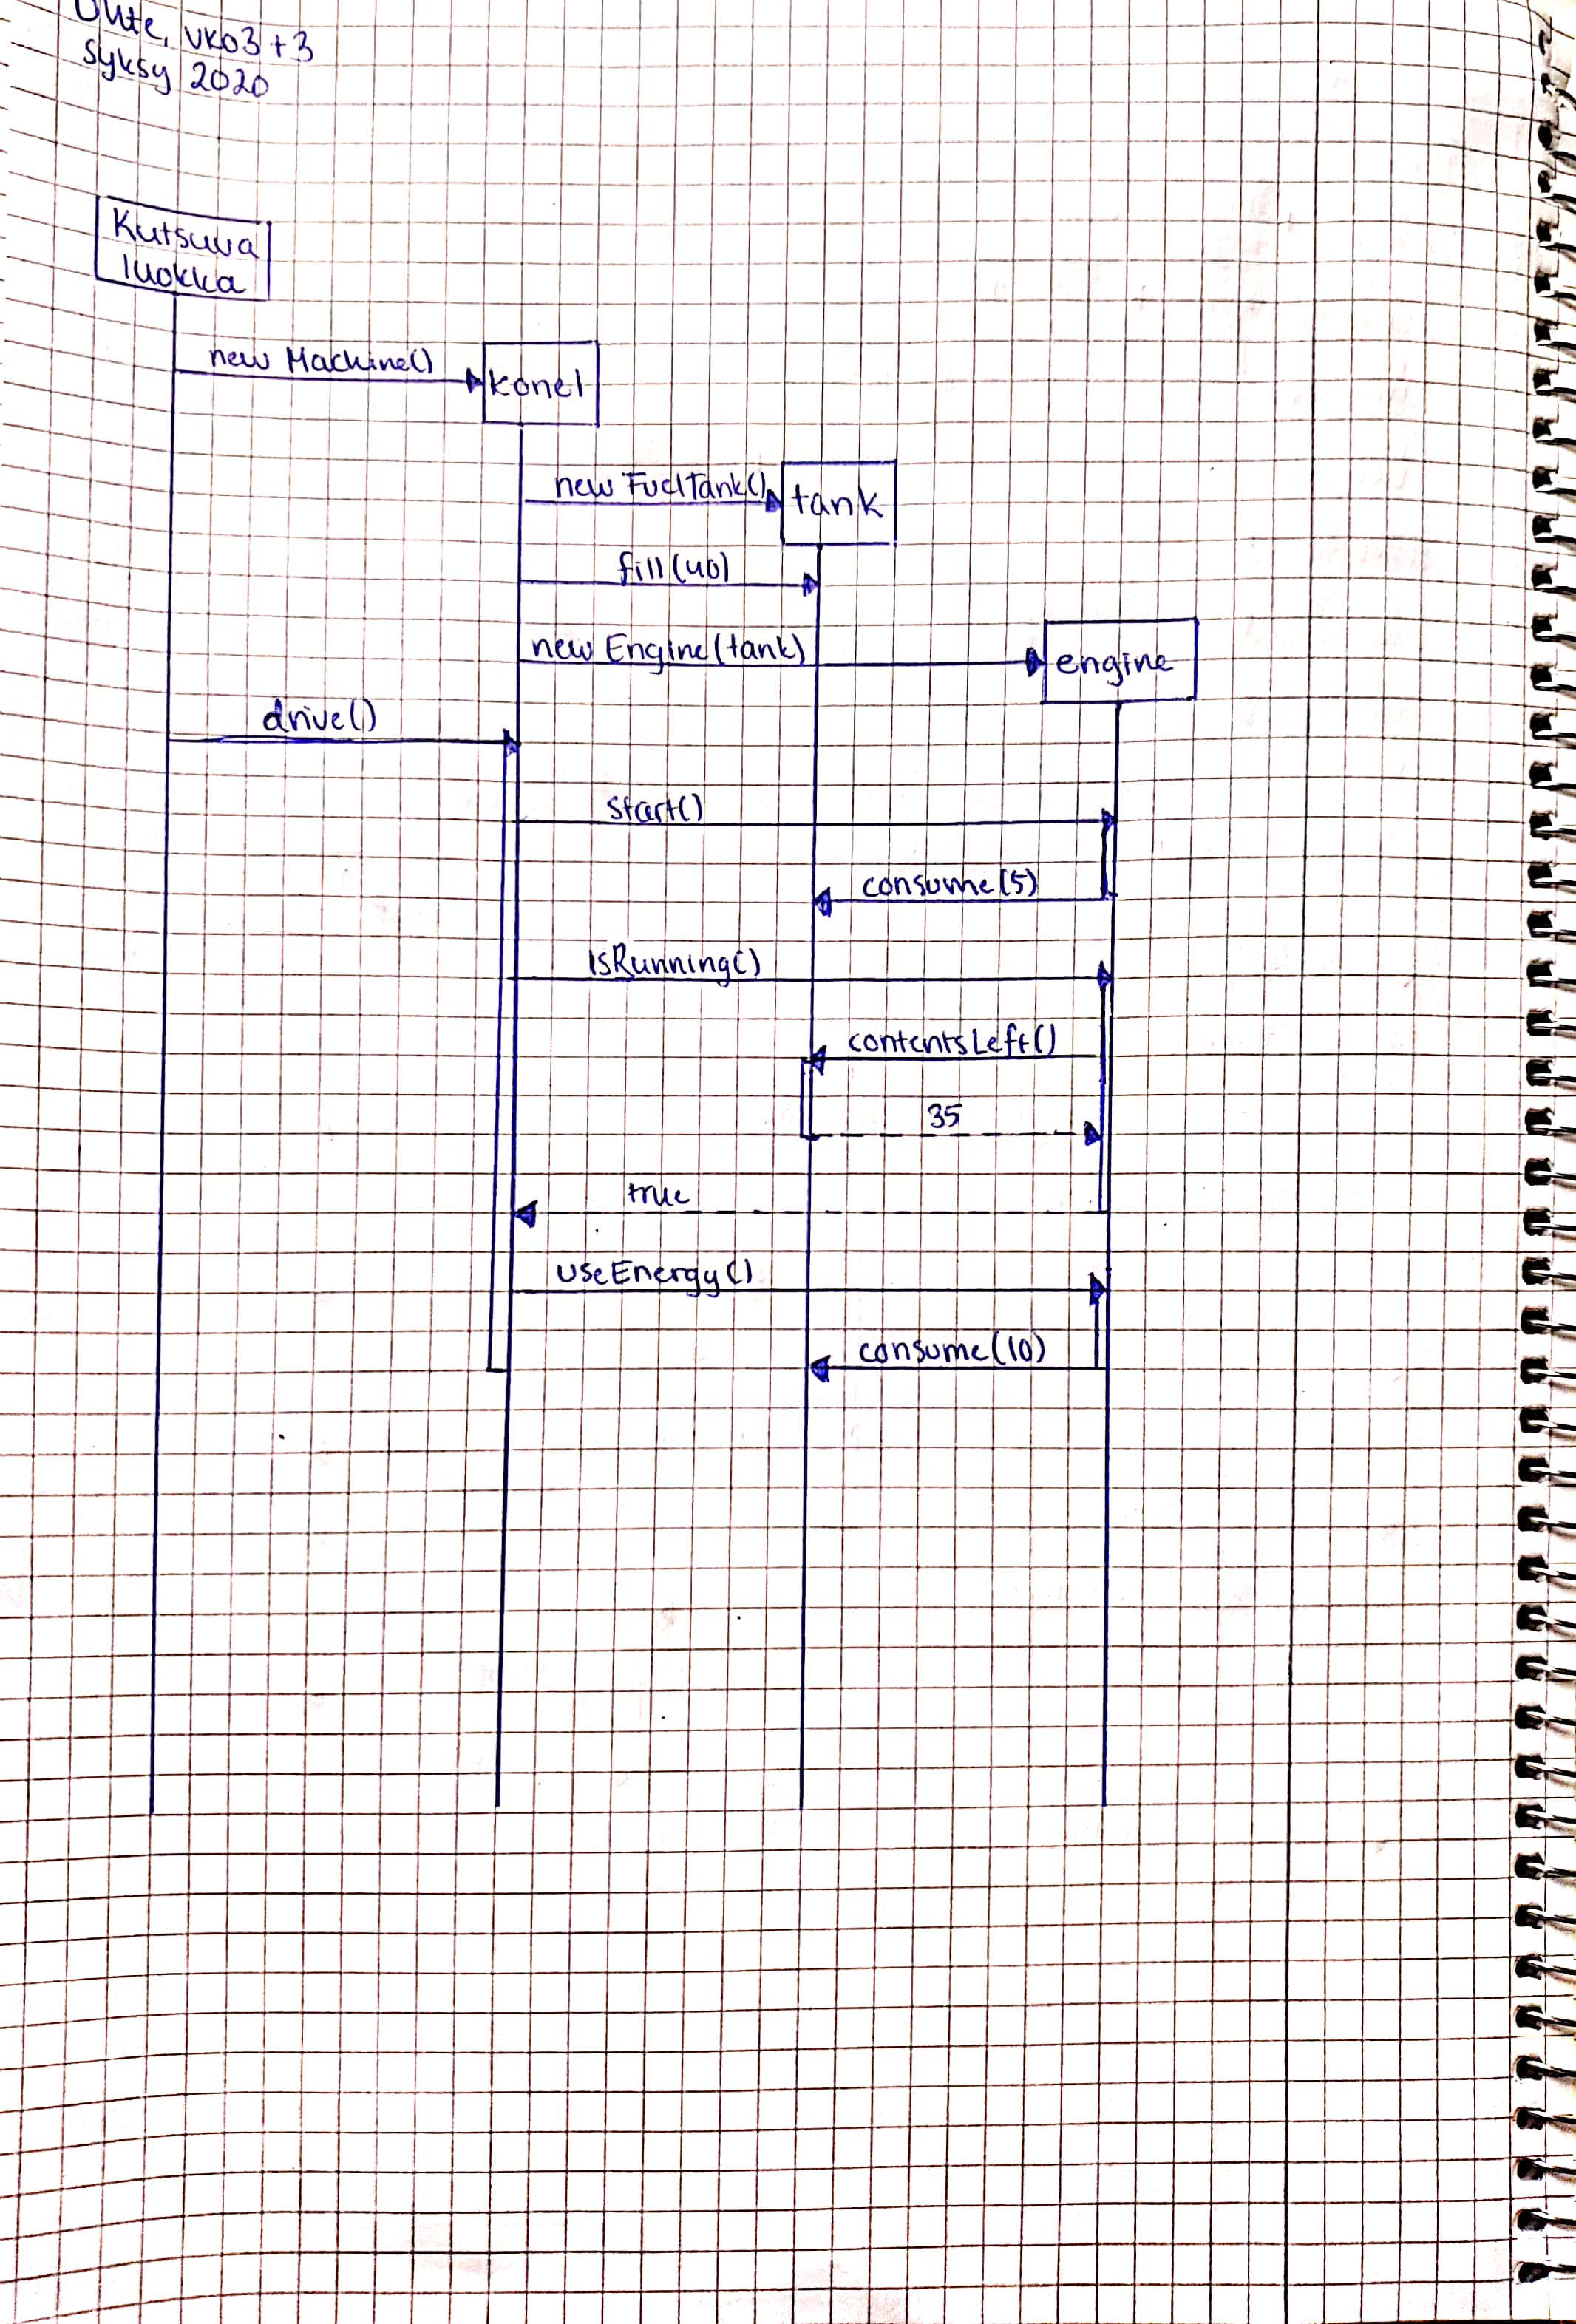 Ohte, vko3+3
Syksy 2020
Kutsuva
luokka
new Machine()
kone1
new FuelTank()
tank
fill(40)
new Engine(tank)
engine
drive()
start()
consume(5)
isRunning()
contentsLeft()
35
true
useEnergy()
consume(10)